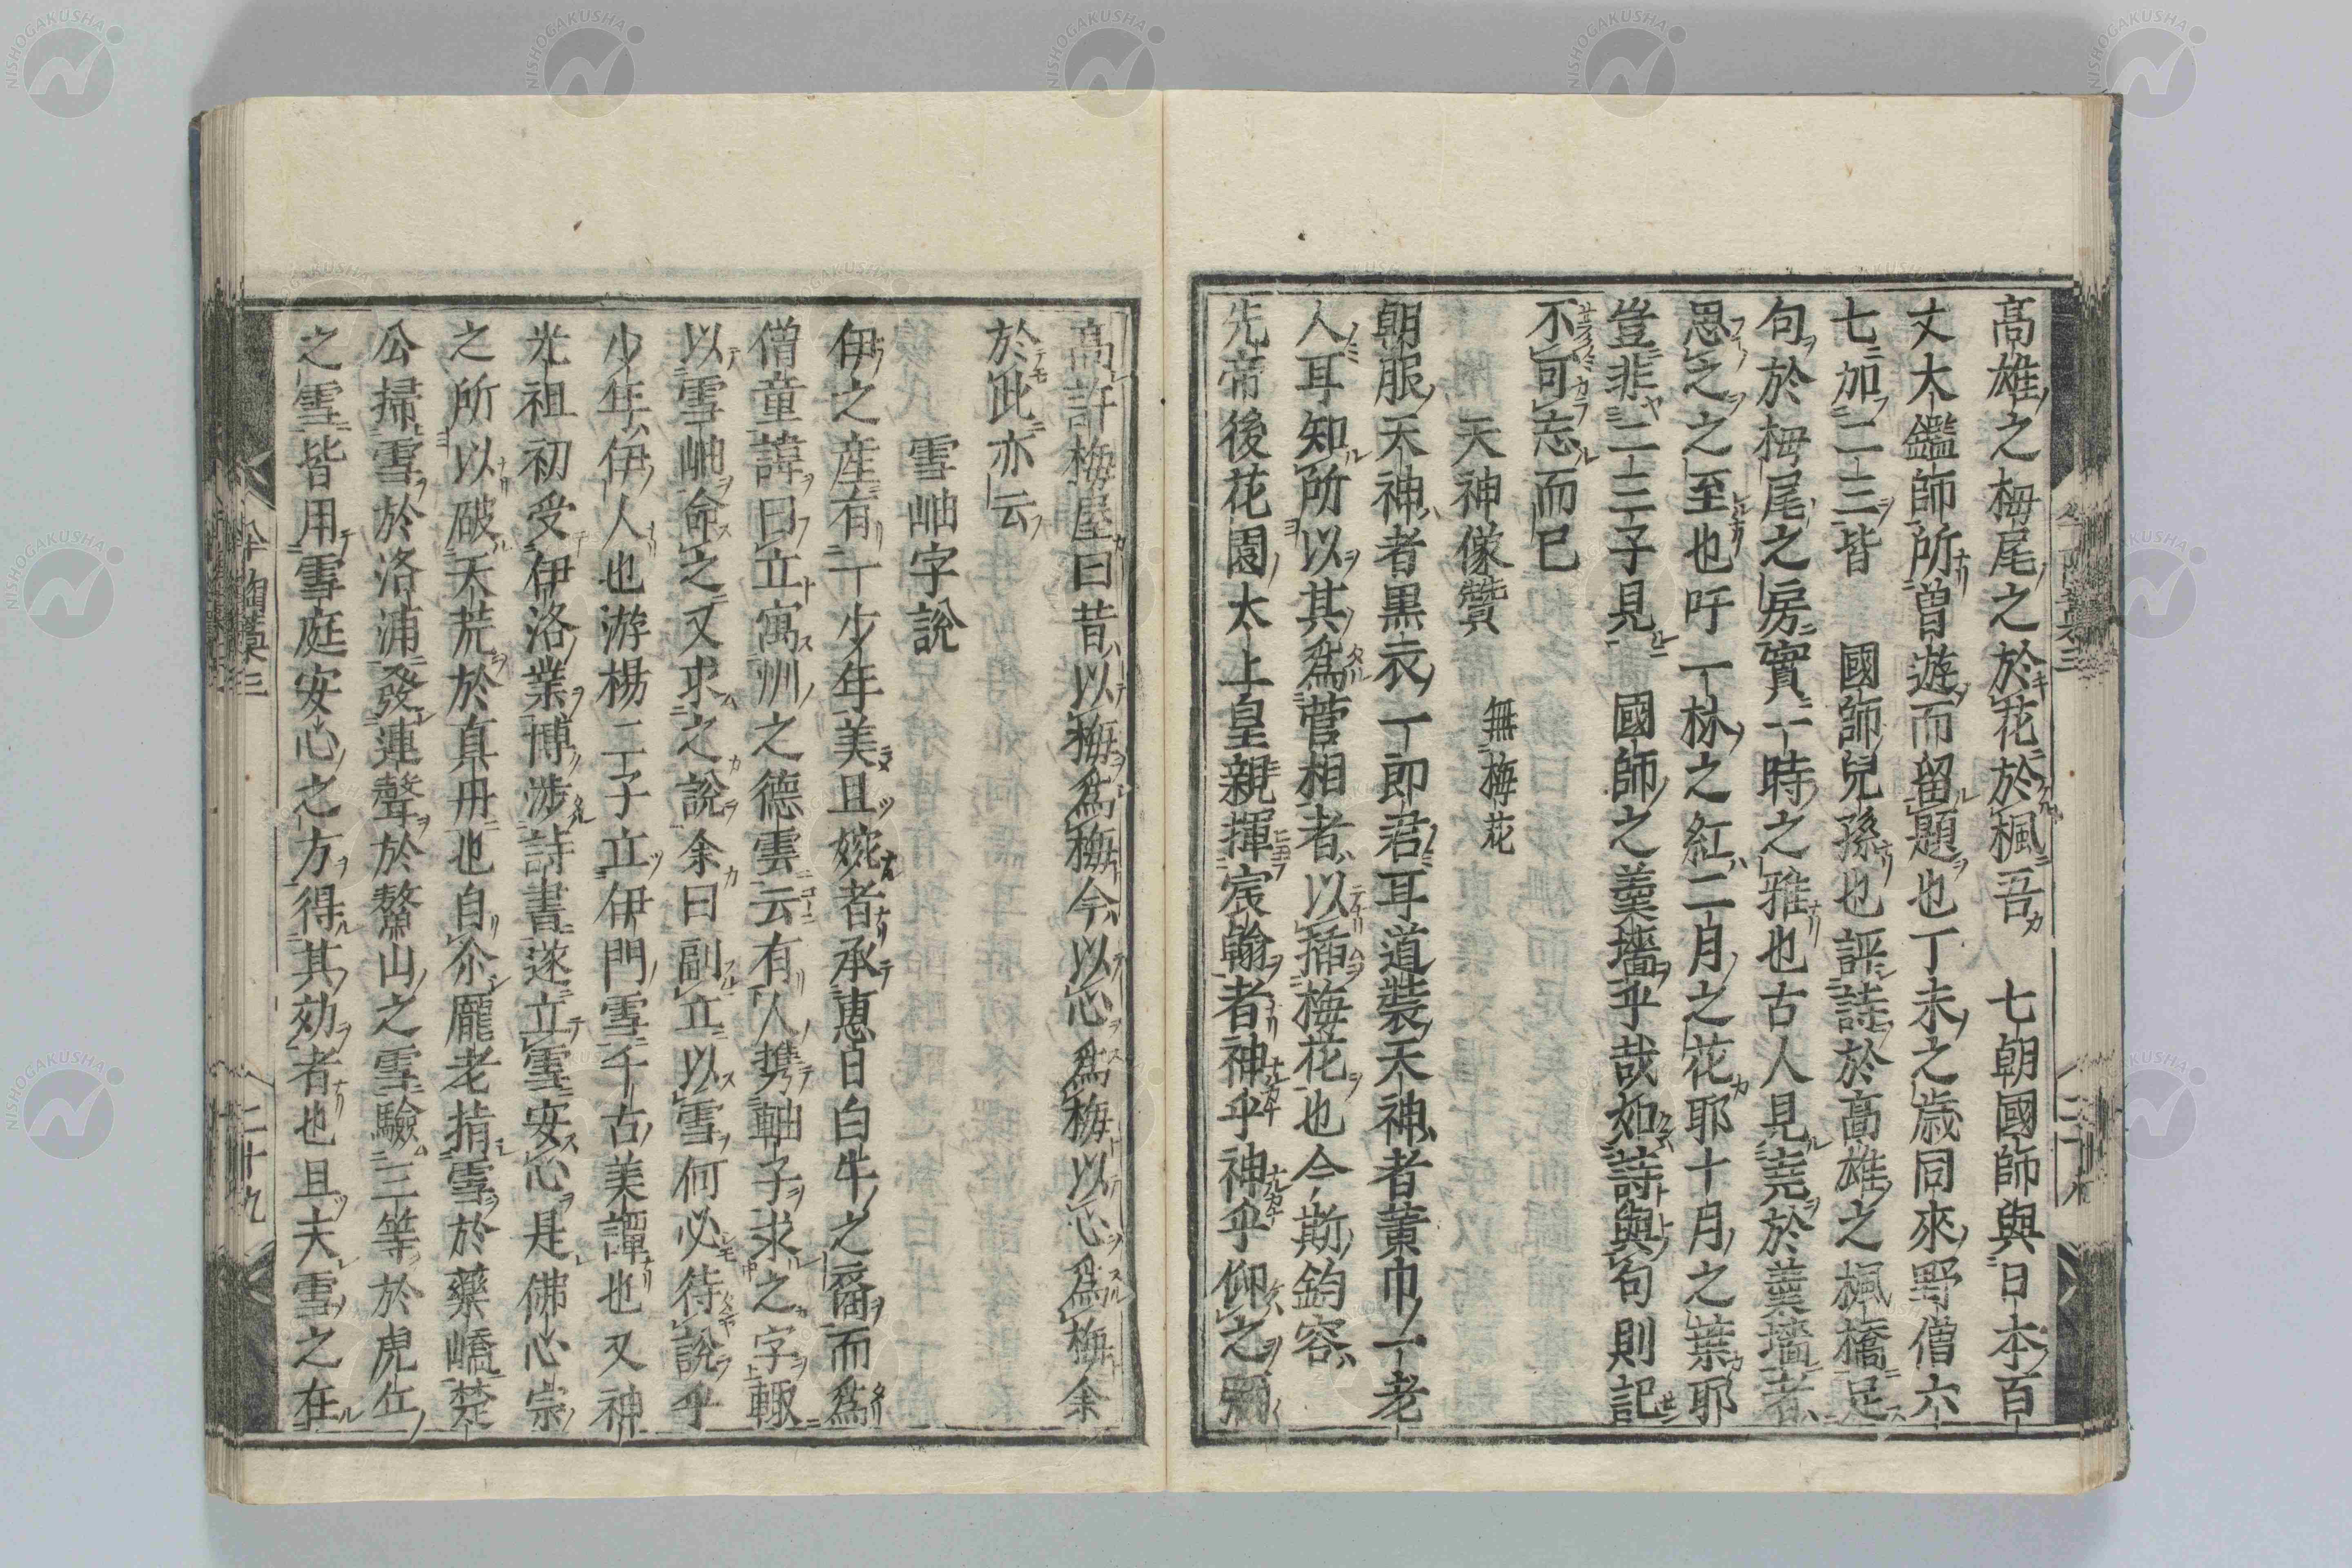 高雄之栂尾之於花於楓吾　七朝國師與日本百
丈大鑑師所曽遊而留題也丁未之歳同來野僧六
七加二三皆　國師兒孫也評詩於高雄之楓橋足
句於栂尾之房實一時之雅也古人見尭於羹墻者
思之之至也吁一林之紅二月之花耶十月之葉耶
豈非二三子見　國師之羹墻乎哉如詩與句則記
不可忘而已
天神像贊　無梅花
朝服天神者黒衣一即君耳道裝天神者黄巾一老
人耳知所以其爲菅相者以揷梅花也今斯鈞容
先帝後花園太上皇親揮宸翰者神乎神乎仰之彌
高許梅屋曰昔以梅爲梅今以心爲梅以心爲梅余
於此亦云
雪岫字説
伊之産有一少年美且婉者承惠日白牛之裔而爲
僧童諱曰立寓洲之德雲云有人携軸子求之字輙
以雪岫命之又求之説余曰副立以雪何必待説乎
少年伊人也游楊二子立伊門雪千古美譚也又神
光祖初受伊洛業博渉詩書遂立雪安心是佛心宗
之所以破天荒於真丹也自尒龐老指雪於藥嶠楚
公掃雪於洛浦發連聲於鰲山之雪驗三等於虎丘
之雪皆用雪庭安心之方得其効者也且夫雪之在
半陶藁三
二十九